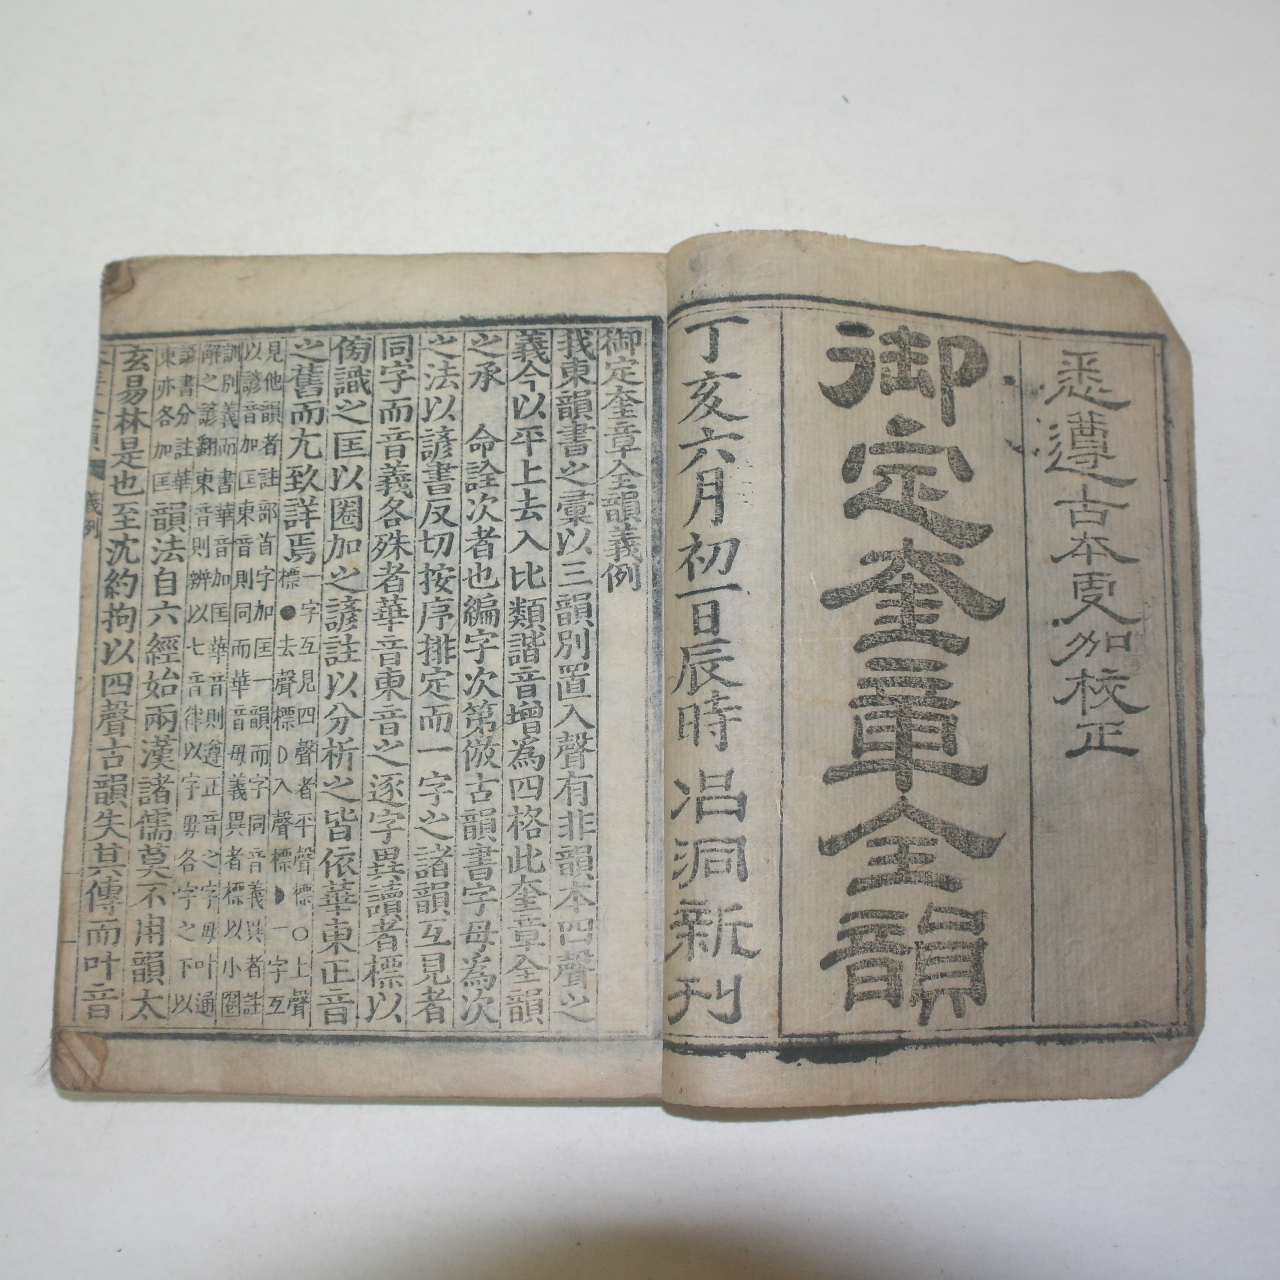 悉遵古本更加校正
御定奎章全韻
丁亥六月初一日辰時 沿洞新刊
御定奎章全韻義例
我東韻書之彙以三韻別置入聲有非韻本四聲之
義今以平上去入比類諧音增為四格此奎章全韻
之承 命詮次者也編字次第倣古韻書字母為次
之法以諺書反切按序排定而一字之諸韻互見者
同字而音義各殊者華音東音之逐字異讀者標以
傍識之匡以圈加之諺註以分析之皆依華東正音
之舊而尤致詳焉 一字互見四聲者平聲標○上聲
標●去聲標◗入聲標◗一字互
見他韻者註部首字加匡一韻而字同音義異者註
以諺音加匡東音則同而華音毋義異者標以小圈
訓別義而書華音加匡華音則遵正音之字毋叶通
解之諺翻東音則辨以七音律以字毋各字之下以
諺書分註華
東亦各加匡 韻法自六經始兩漢諸儒莫不用韻太
玄易林是也至沈約拘以四聲古韻失其傳而叶音
義例